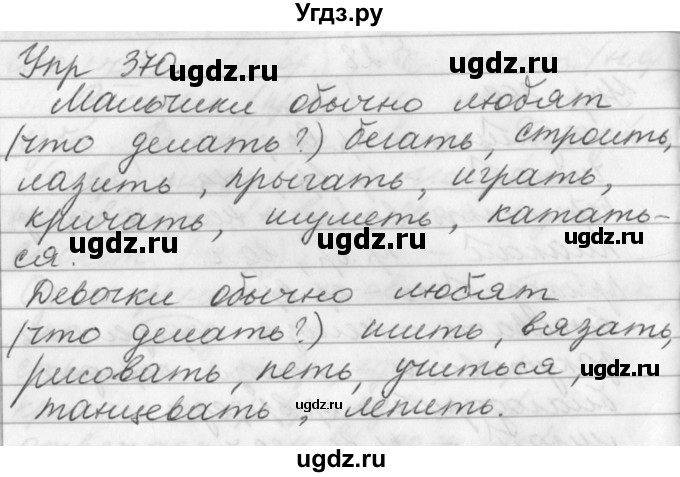 Угдз.ру
Упр 370
ugdz.ru ugdz.ru
Мальчики обычно любят
(что делать?) бегать, строить,
лазить, прыгать, играть,
кричать, шуметь, катать-
ся.
ugdz.ru ugdz.ru ugdz.ru
Девочки обычно любят
(что делать?) шить, вязать,
рисовать, петь, учиться,
ugdz.ru
танцевать, лепить.
ugdz.ru
ugdz.ru